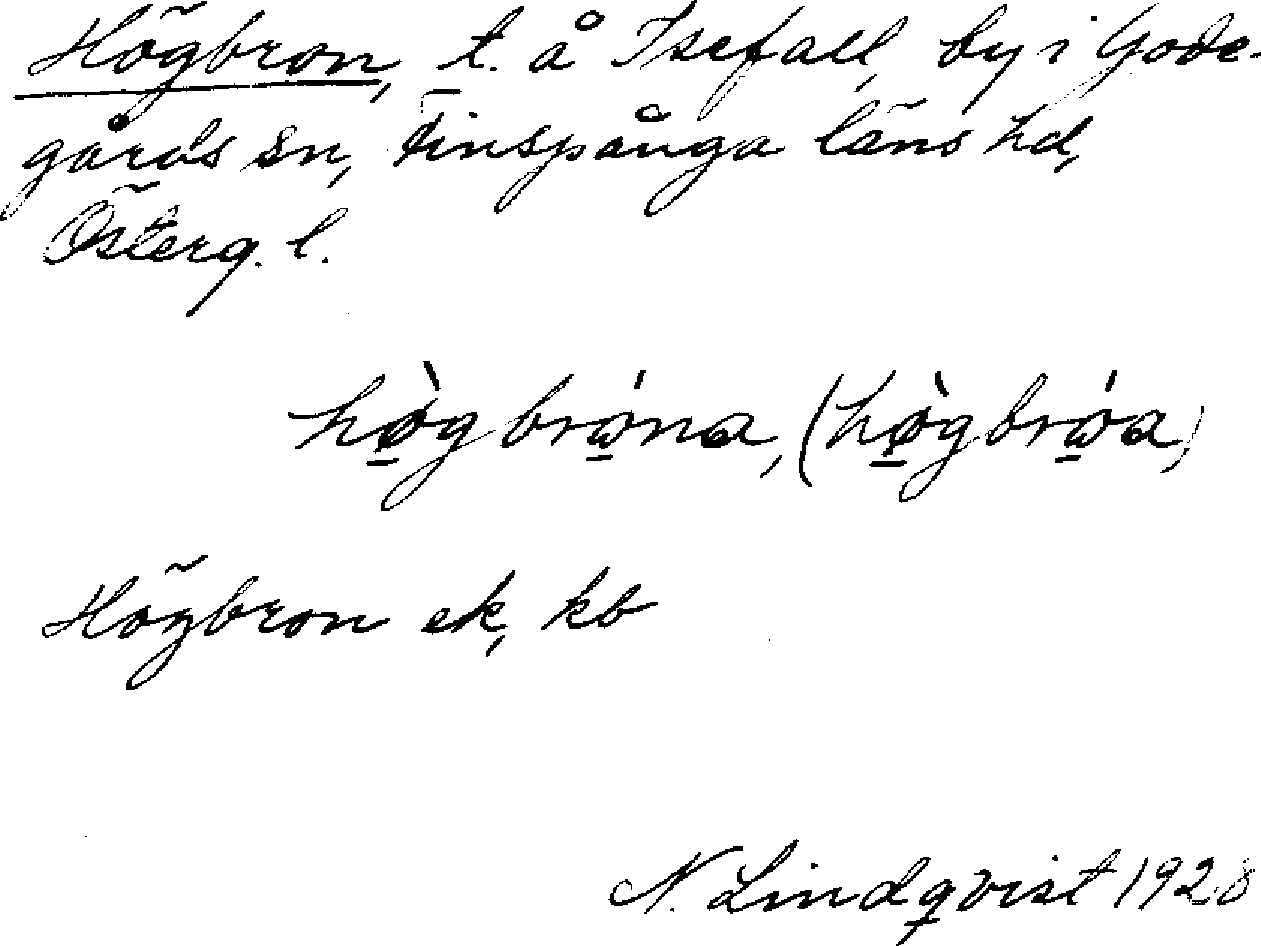 Högbron, t. å Isefall, by i Gode-
gårds sn, Finspånga läns hd,
Österg. l.
hø̀g brὼna, (hø̀g brὼa)
Högbron ek, kb
N. Lindqvist 1928